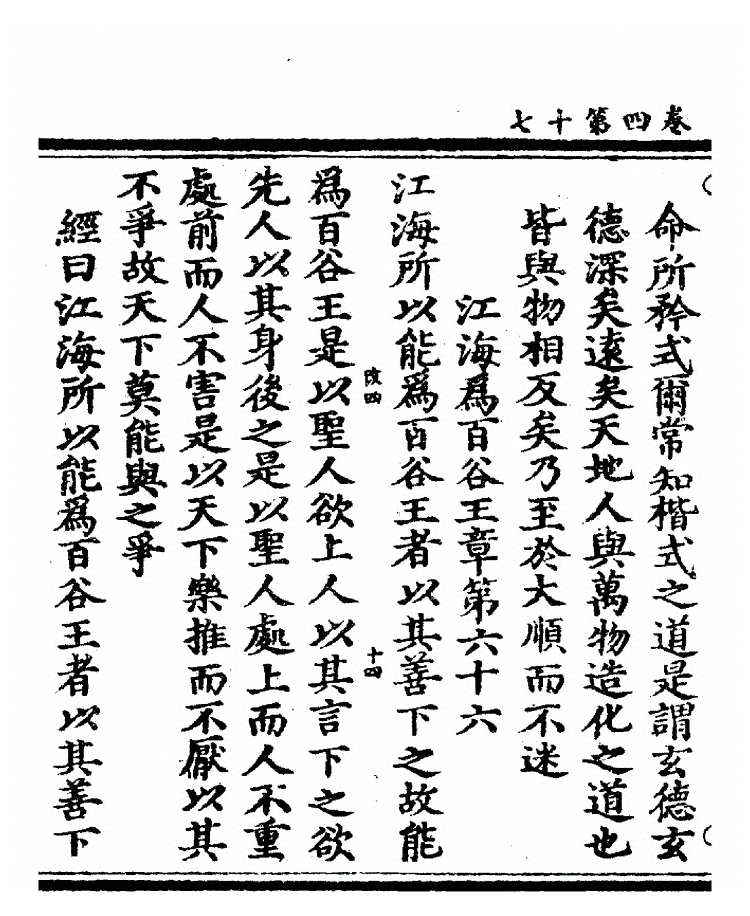 卷四第十七
命所矜式爾常知楷式之道是謂玄德玄
德深矣遠矣天地人與萬物造化之道也
皆與物相反矣乃至於大順而不迷
江海為百谷王章第六十六
江海所以能為百谷王者以其善下之故能
改四
十四
為百谷王是以聖人欲上人以其言下之欲
先人以其身後之是以聖人處上而人不重
處前而人不害是以天下樂推而不厭以其
不爭故天下莫能與之爭
經曰江海所以能為百谷王者以其善下